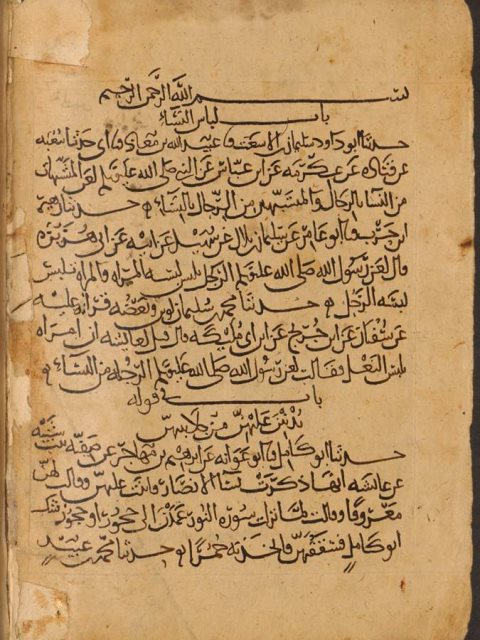 بسم الله الرحمن الرحيم
باب لباس النساء
حدثنا ابو داود سليمان بن الاشعث نا عبيد الله بن معاذ نا ابي حدثنا شعبه
عن قتاده عن عكرمه عن ابن عباس عن النبي صلى الله عليه وسلم لعن المتشبهات
من النسا بالرجال والمتشبهين من الرجال بالنساء حدثنا زهير
ابن حرب نا ابو عامر عن سليمان بن بلال عن سهيل عن ابيه عن ابي هريره
قال لعن رسول الله صلى الله عليه وسلم الرجل يلبس لبسه المراه والمراه تلبس
لبسه الرجل حدثنا محمد بن سليمان لوين وبعضه قراه عليه
عن سفين عن ابن جريج عن ابن ابي مليكه قال قيل لعايشه ان امراه
تلبس النعل فقالت لعن رسول الله صلى الله عليه وسلم الرجله من النساء
باب في قوله
يدنين عليهن من جلابيبهن
حدثنا ابو كامل نا ابو عوانه عن ابراهيم بن مهاجر عن صفيه بنت شيبه
عن عايشه انها ذكرت نسا الانصار فاثنت عليهن وقالت لهن
معروفا وقالت لما نزلت سوره النور عمدن الى حجور او حجوز شك
ابو كامل فشققنهن فاتخذنه خمرا حدثنا محمد بن عبيد